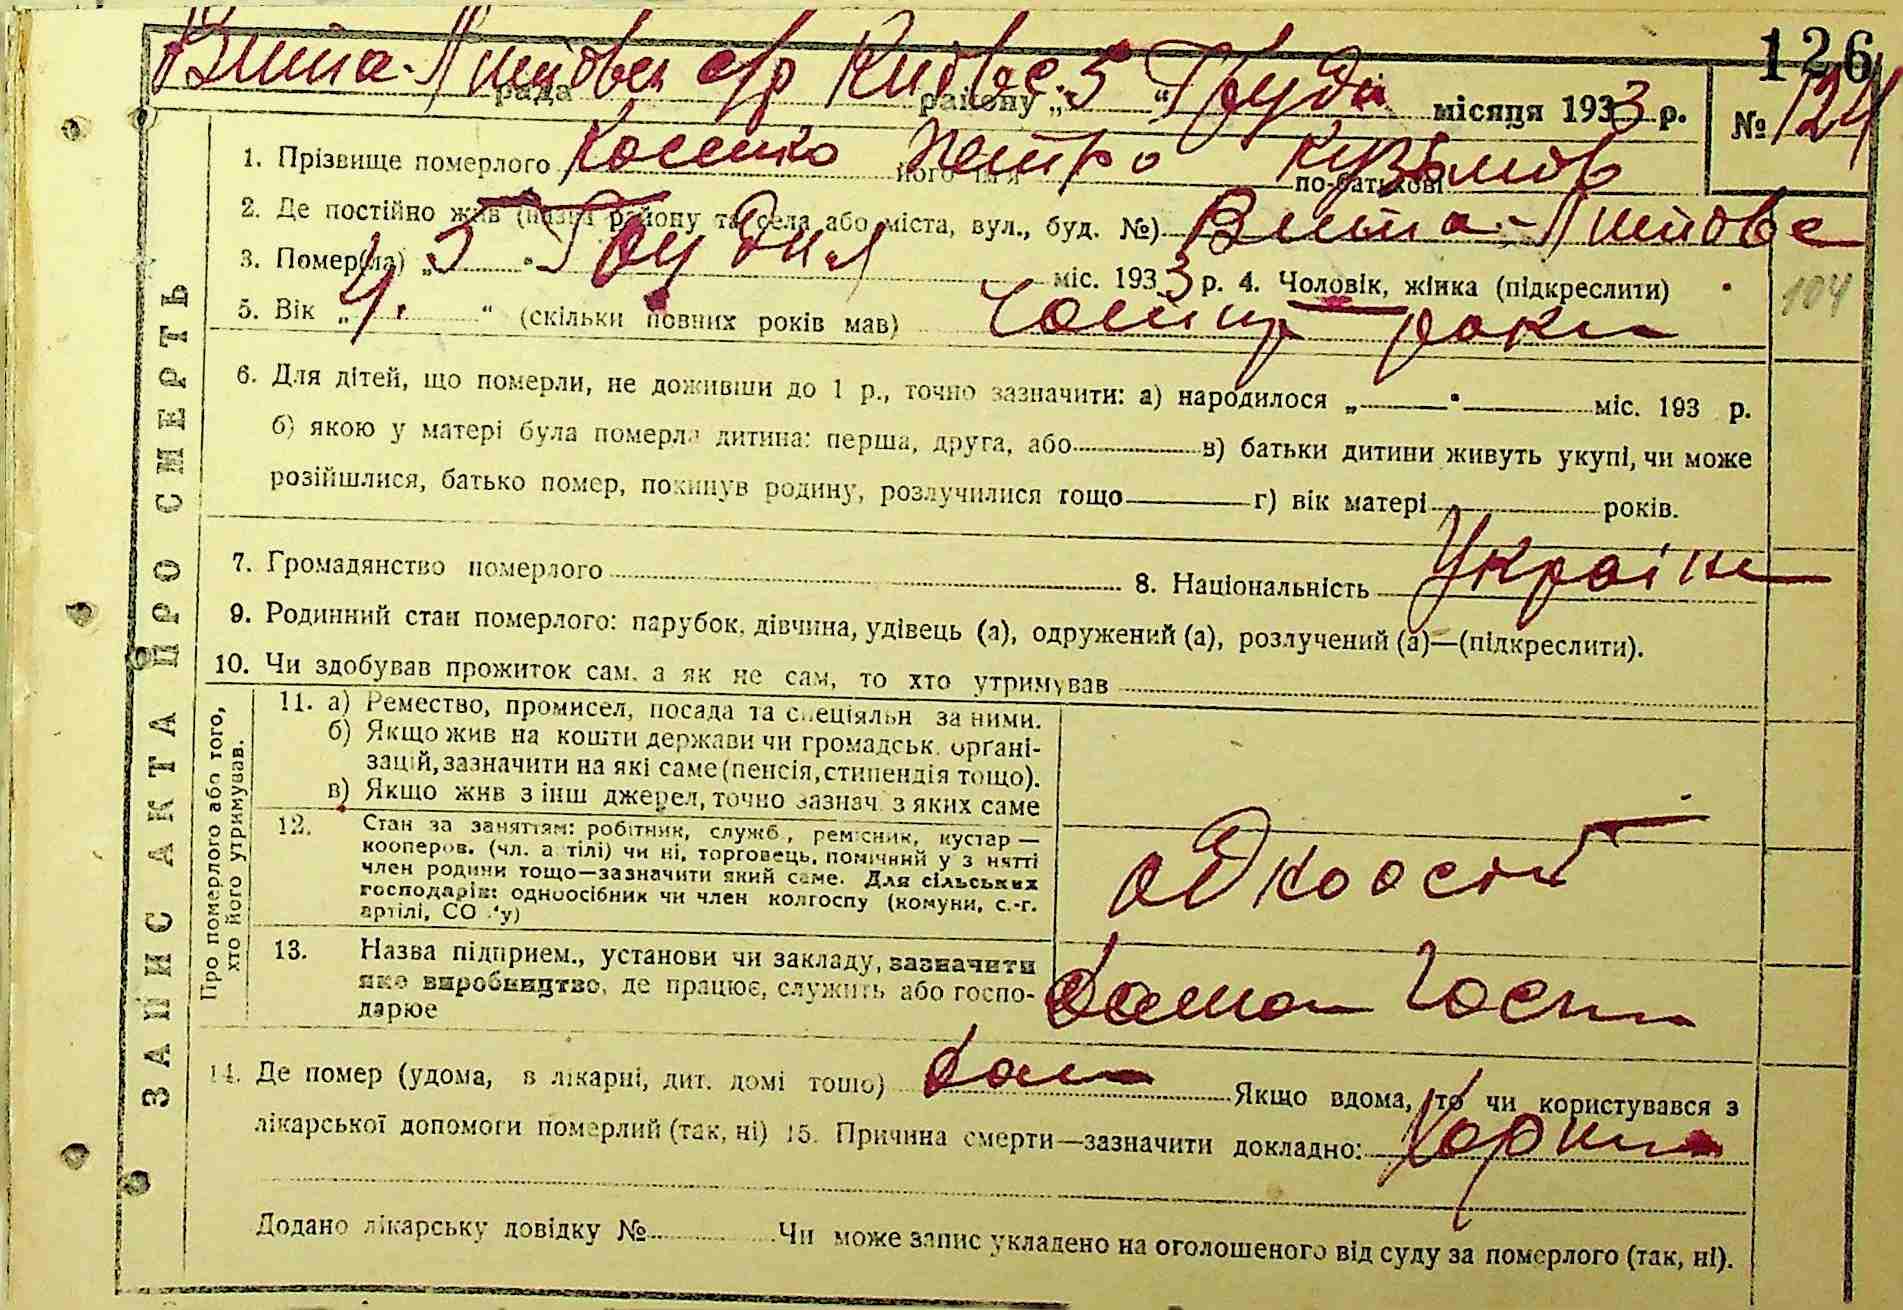 126
Вита-Литовсь с/р Київсь 5 Грудн
рада району „ “ місяця 1933 р. № 124
1. Прізвище померлого Косенко його ім'я Петро по-батькові Кузьмов
2. Де постійно жив (назва району та села або міста, вул., буд. №) Вита-Литовс
3. Помер(ла) „5“ Грудня міс. 1933 р. 4. Чоловік, жінка (підкреслити)
104
5. Вік „4.“ (скільки повних років мав) Чотири роки
6. Для дітей, що померли, не доживши до 1 р., точно зазначити: а) народилося „ “ міс. 193 р.
б) якою у матері була померла дитина: перша, друга, або в) батьки дитини живуть укупі, чи може
розійшлися, батько помер, покинув родину, розлучилися тощо г) вік матері років.
7. Громадянство померлого 8. Національність Україн
9. Родинний стан померлого: парубок, дівчина, удівець (а), одружений (а), розлучений (а)—(підкреслити).
10. Чи здобував прожиток сам, а як не сам, то хто утримував
ЗАПИС АКТА ПРО СМЕРТЬ
Про померлого або того,
хто його утримував.
11. а) Ремество, промисел, посада та спеціяльн за ними.
б) Якщо жив на кошти держави чи громадськ. органі-
зацій, зазначити на які саме (пенсія, стипендія тощо).
в) Якщо жив з інш джерел, точно зазнач. з яких саме
12. Стан за заняттям: робітник, служб., ремісник, кустар —
кооперов. (чл. артілі) чи ні, торговець, помічний у занятті
член родини тощо—зазначити який саме. Для сільських
господарів: одноосібник чи член колгоспу (комуни, с.-г.
артілі, СО 'у)
13. Назва підприєм., установи чи закладу, зазначити
яке виробництво, де працює, служить або госпо-
дарює
14. Де помер (удома, в лікарні, дит. домі тощо) Якщо вдома, то чи користувався з
лікарської допомоги померлий (так, ні) 15. Причина смерти—зазначити докладно:
Додано лікарську довідку № Чи може запис укладено на оголошеного від суду за померлого (так, ні).